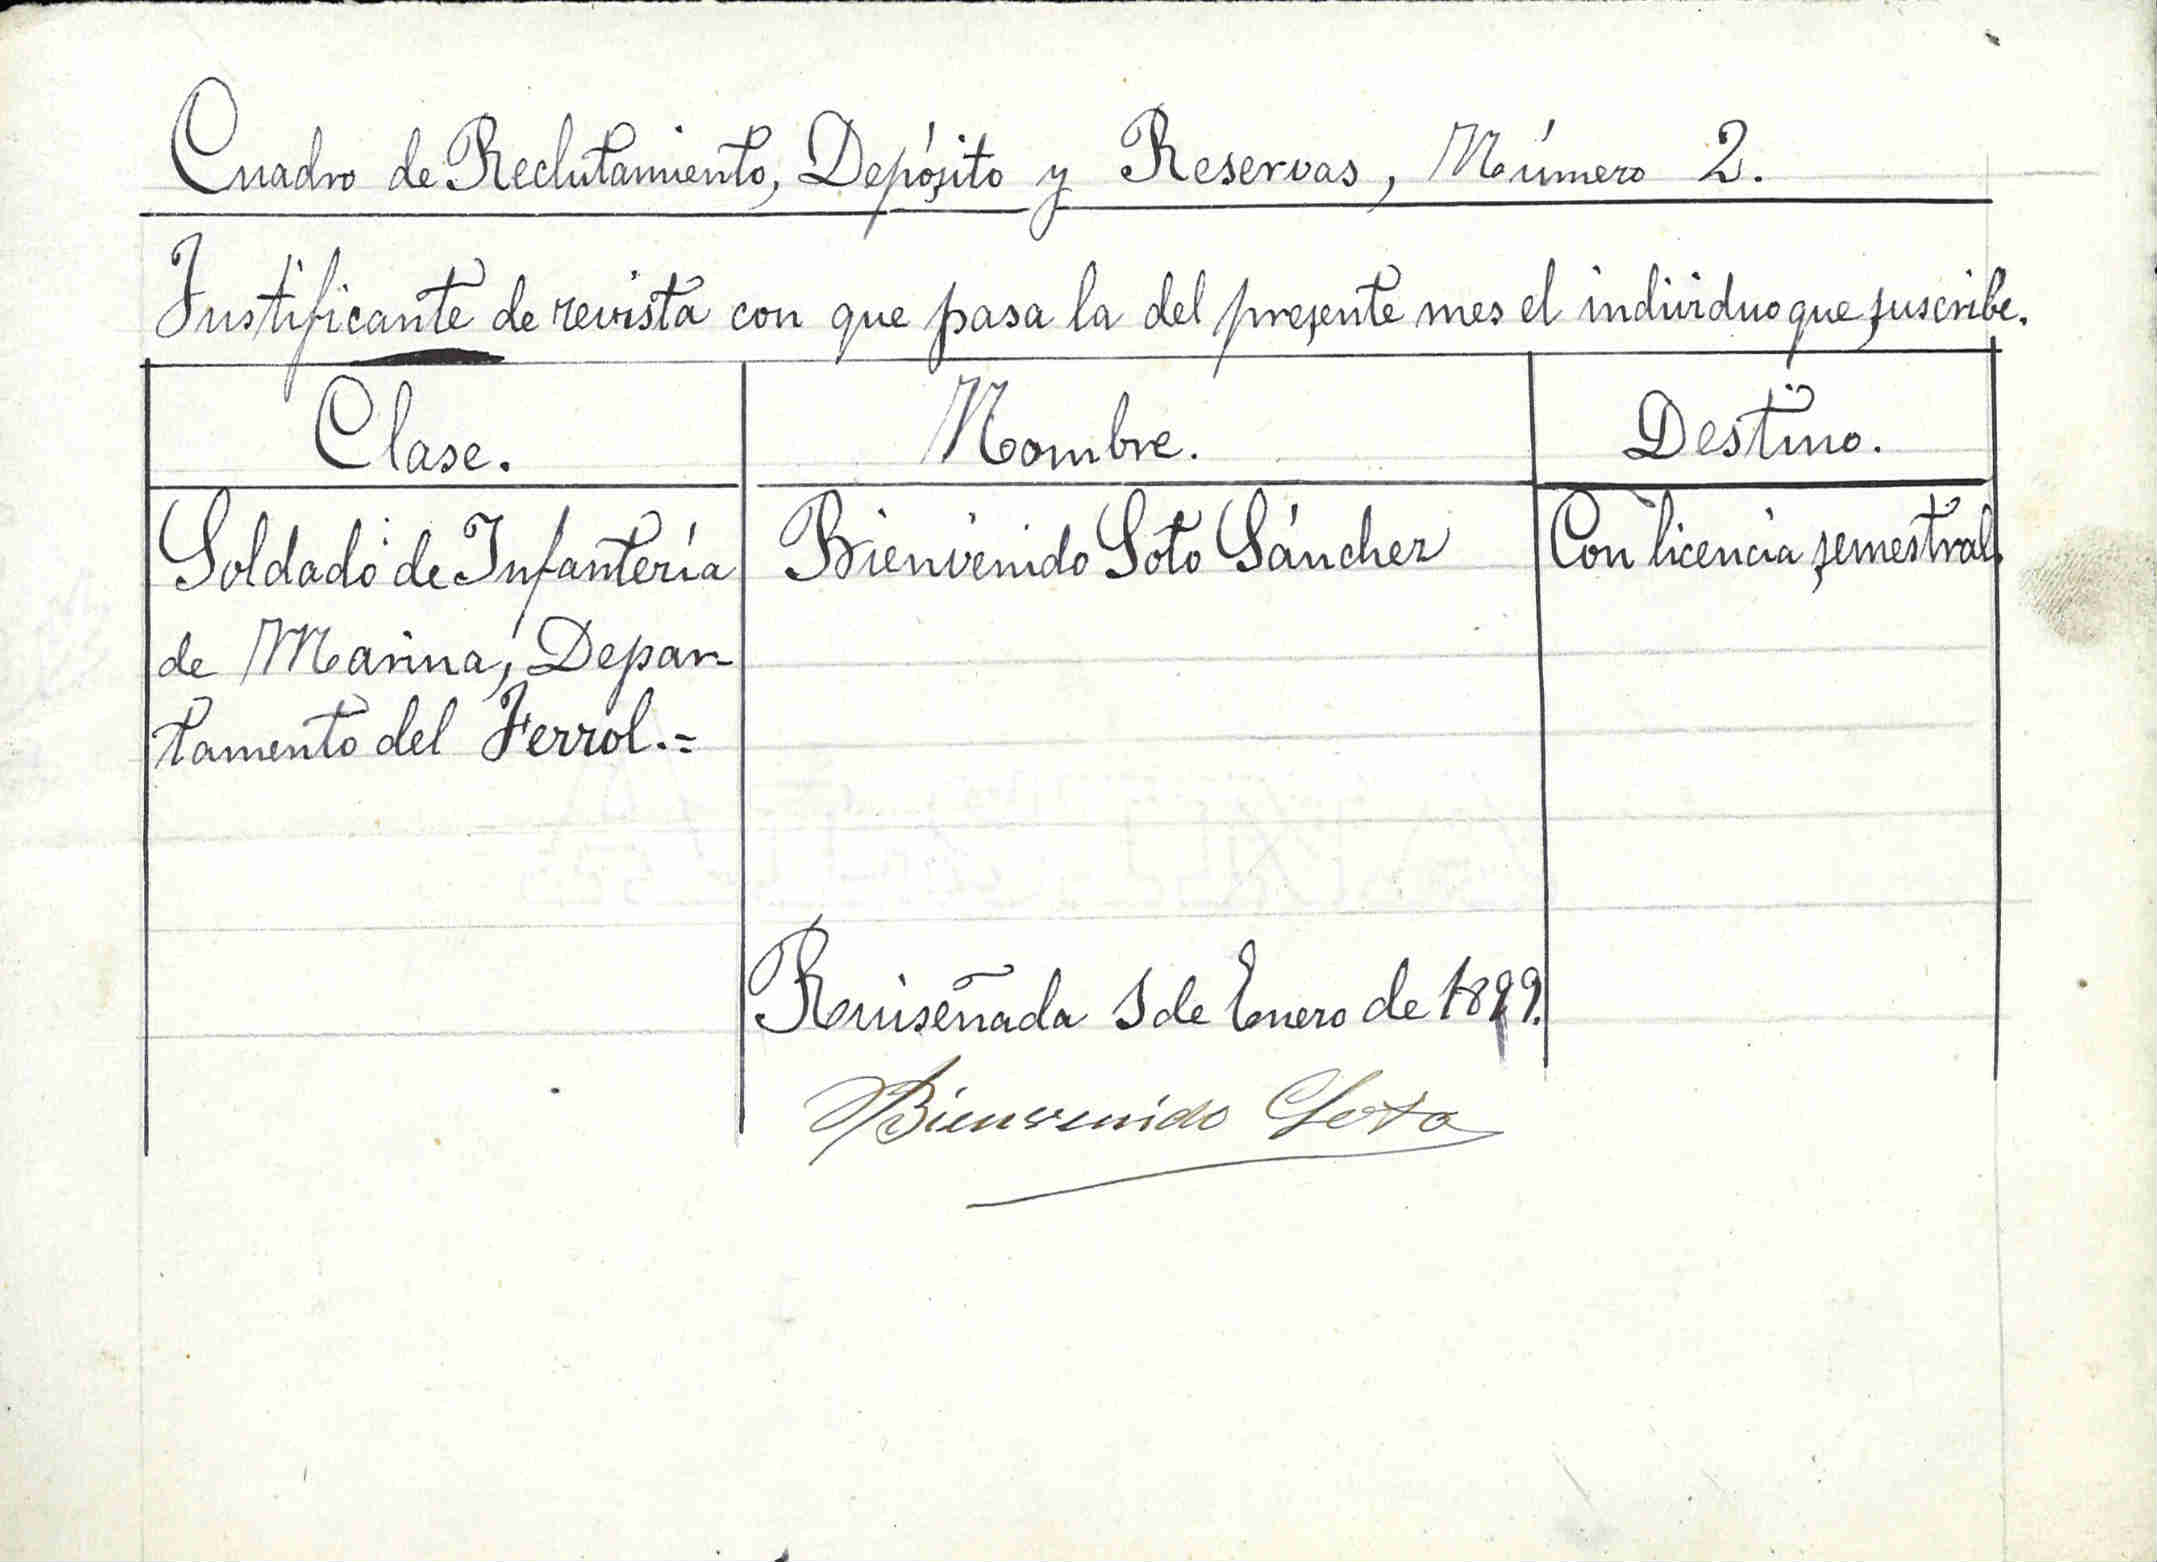 Cuadro de Reclutamiento, Depósito y Reservas, Número 2.
Justificante de revista con que pasa la del presente mes el individuo que suscribe.
Clase. Nombre. Destino.
Soldado de Infantería Bienvenido Soto Sánchez Con licencia semestral.
de Marina, Depar
tamento del Ferrol.=
Ruiseñada 1 de Enero de 1899.
Bienvenido Soto